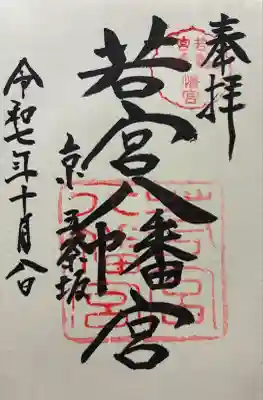 奉拝
若宮八幡宮
京 五条坂
令和七年十月八日